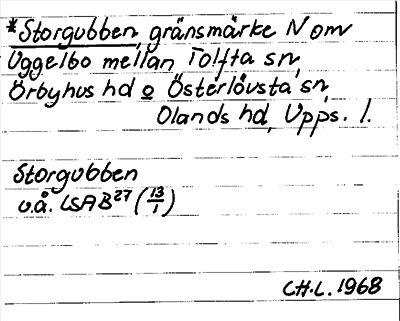 *Storgubben, gränsmärke N om
Uggelbo mellan Tolfta sn,
Örbyhus hd o Österlövsta sn,
Olands hd, Upps. l.
Storgubben
u.å. LSAB27 (13/1)
CH.L. 1968